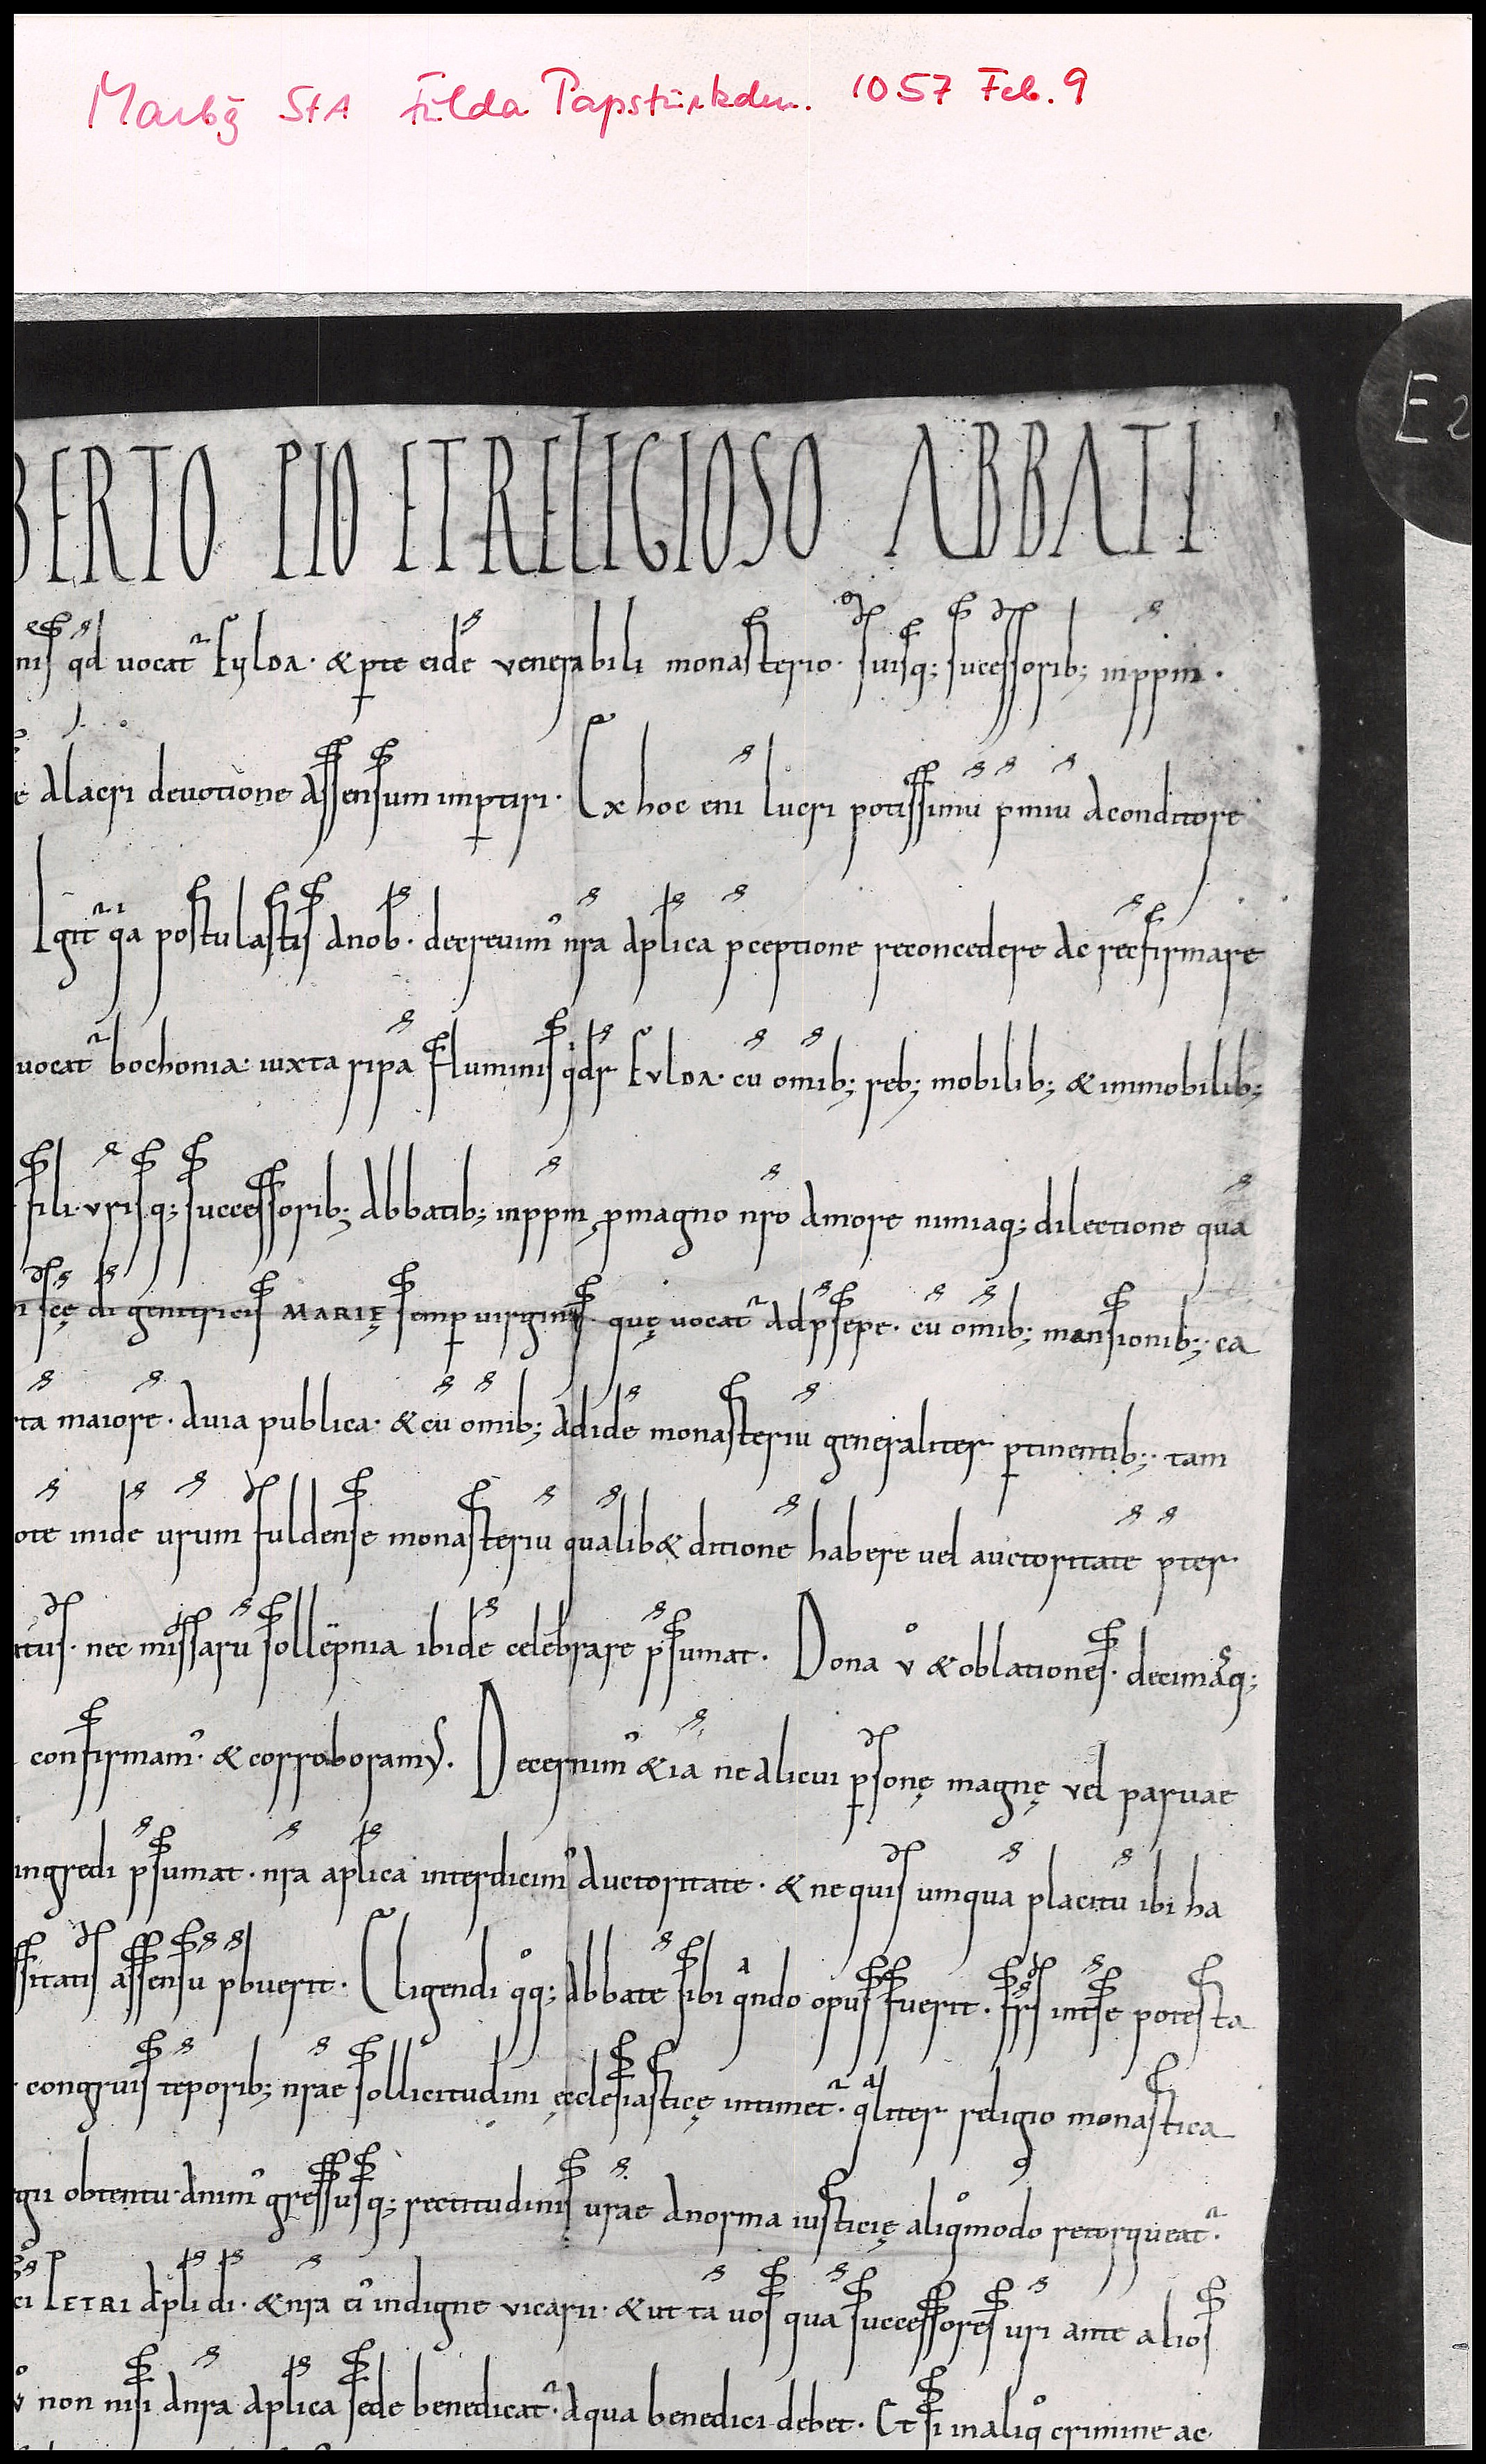 Marbg StA Fulda Papsturkden. 1057 Feb. 9
E2
BERTO PIO ET RELIGIOSO ABBATI
nis qd uocat̃ Fulda. & p̱te eidē venerabili monasterio. suisq; successorib; inppm̄.
e alacri deuotione assensum imp̱tiri. Ex hoc enī lucri potissimū p̄miū aconditore
Igit̃ q̇a postulastis anob̄. decreuim᾽ nr̄a ap̄lica p̄ceptione reconcedere ac recfirmare
uocat̃ bochonia: iuxta ripā fluminis qd̄r Fulda. cū om̄ib; reb; mobilib; & immobilib;
fili. vr̄isq; successorib; abbatib; inppm̄ p̱magno nr̄o amore nimiaq; dilectione quā
n scę dī genitricis MARIĘ semp̱ uirginis. quę uocat̃ adp̄sepe. cū om̄ib; mansionib;. ca
rta maiore. auia publica. & cū om̄ib; adidē monasteriū generaliter p̱tinentib;. tam
ote inidē vr̄um fuldense monasteriū qualib& ditionē habere vel auctoritatē p̄ter
tus. nec missarū sollēpnia ibidē celebrare p̄sumat. Dona v̊ & oblationes. decimasq;
confirmam᾽. & corroboramus. Decernim᾽ &iā ne alicui p̱sonę magnę vel paruae
ingredi p̄sumat. nr̄a ap̄lica interdicim᾽ auctoritate. & ne quis umquā placitū ibi ha
ssitatis assensū p̄buerit. Eligendi q̊q; abbatē sibi qando opus fuerit. fr̄s int̄se potesta
congruis tēporib; nr̄ae sollicitudini ęcclesiasticę intimet̃. qaliter religio monastica
gii obtentu. anim᾽ gressusq; rectitudinis vr̄ae anorma iusticię aliq̊modo retorqueat̃.
ci PETRI ap̄li dī. & nr̄a ei᾽ indigne vicarii. & ut tā uos quā successores vr̄i ante alios
v̊ non nisi anr̄a ap̄lica sede benedicat̃. aqua benedici debet. Et si inaliq̊ crimine ac